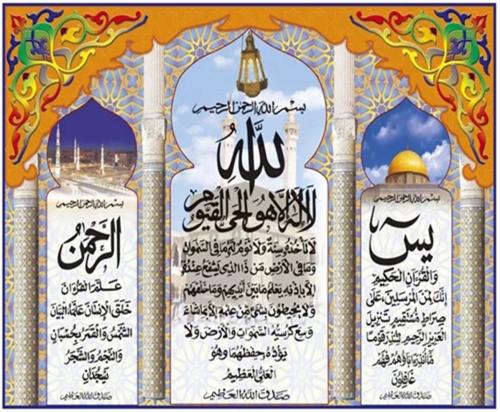 بسم الله الرحمن الرحيم
يس
والقرآن الحكيم
إنك لمن المرسلين على
صراط مستقيم تنزيل
العزيز الرحيم لتنذر قوما
ما أنذر آباؤهم فهم
غافلون
صدق الله العظيم
بسم الله الرحمن الرحيم
الله
لا إله إلا هو الحي القيوم
لا تأخذه سنة ولا نوم له ما في السموات
وما في الأرض من ذا الذي يشفع عنده
إلا بإذنه يعلم ما بين أيديهم وما خلفهم
ولا يحيطون بشيء من علمه إلا بما شاء
وسع كرسيه السموات والأرض ولا
يؤده حفظهما وهو
العلي العظيم
صدق الله العظيم
بسم الله الرحمن الرحيم
الرحمن
علم القرآن
خلق الإنسان علمه البيان
الشمس والقمر بحسبان
والنجم والشجر
يسجدان
صدق الله العظيم